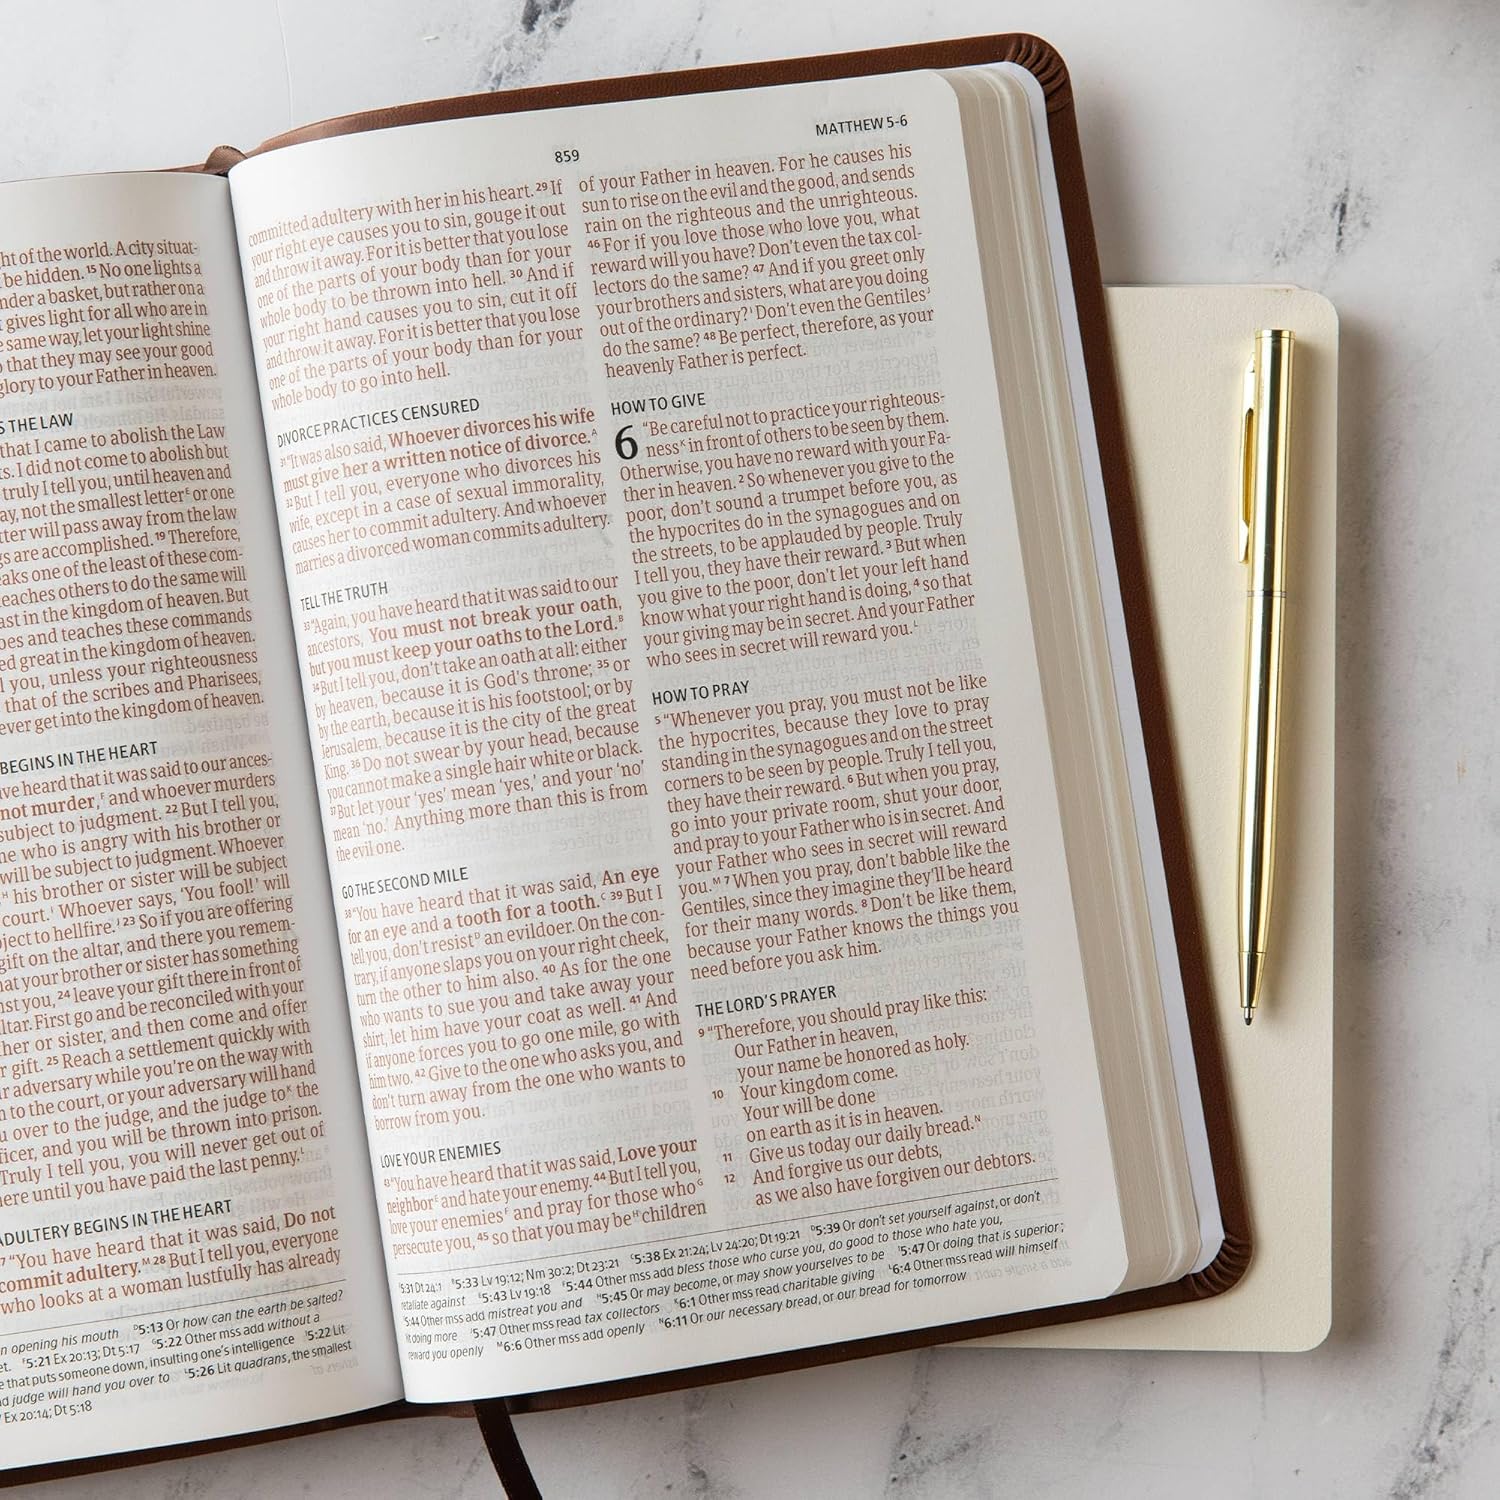 ht of the world. A city situat-
be hidden. 15 No one lights a
nder a basket, but rather on a
gives light for all who are in
same way, let your light shine
that they may see your good
glory to your Father in heaven.
S THE LAW
that I came to abolish the Law
ts. I did not come to abolish but
truly I tell you, until heaven and
ay, not the smallest letterE or one
tter will pass away from the law
gs are accomplished. 19 Therefore,
eaks one of the least of these com-
teaches others to do the same will
ast in the kingdom of heaven. But
oes and teaches these commands
ed great in the kingdom of heaven.
l you, unless your righteousness
that of the scribes and Pharisees,
ever get into the kingdom of heaven.
BEGINS IN THE HEART
ve heard that it was said to our ances-
not murder,F and whoever murders
subject to judgment. 22 But I tell you,
ne who is angry with his brother or
will be subject to judgment. Whoever
H his brother or sister will be subject
court.I Whoever says, 'You fool!' will
ject to hellfire.J 23 So if you are offering
gift on the altar, and there you remem-
at your brother or sister has something
nst you, 24 leave your gift there in front of
altar. First go and be reconciled with your
her or sister, and then come and offer
r gift. 25 Reach a settlement quickly with
r adversary while you're on the way with
n to the court, or your adversary will hand
u over to the judge, and the judge toK the
ficer, and you will be thrown into prison.
Truly I tell you, you will never get out of
ere until you have paid the last penny.L
ADULTERY BEGINS IN THE HEART
7 "You have heard that it was said, Do not
commit adultery.M 28 But I tell you, everyone
who looks at a woman lustfully has already
n opening his mouth D5:13 Or how can the earth be salted?
et. F5:21 Ex 20:13; Dt 5:17 G5:22 Other mss add without a
e that puts someone down, insulting one's intelligence I5:22 Lit
d judge will hand you over to L5:26 Lit quadrans, the smallest
Ex 20:14; Dt 5:18
859
MATTHEW 5-6
committed adultery with her in his heart. 29 If
your right eye causes you to sin, gouge it out
and throw it away. For it is better that you lose
one of the parts of your body than for your
whole body to be thrown into hell. 30 And if
your right hand causes you to sin, cut it off
and throw it away. For it is better that you lose
one of the parts of your body than for your
whole body to go into hell.
DIVORCE PRACTICES CENSURED
31 "It was also said, Whoever divorces his wife
must give her a written notice of divorce.A
32 But I tell you, everyone who divorces his
wife, except in a case of sexual immorality,
causes her to commit adultery. And whoever
marries a divorced woman commits adultery.
TELL THE TRUTH
33 "Again, you have heard that it was said to our
ancestors, You must not break your oath,
but you must keep your oaths to the Lord.B
34 But I tell you, don't take an oath at all: either
by heaven, because it is God's throne; 35 or
by the earth, because it is his footstool; or by
Jerusalem, because it is the city of the great
King. 36 Do not swear by your head, because
you cannot make a single hair white or black.
37 But let your 'yes' mean 'yes,' and your 'no'
mean 'no.' Anything more than this is from
the evil one.
GO THE SECOND MILE
38 "You have heard that it was said, An eye
for an eye and a tooth for a tooth.C 39 But I
tell you, don't resistD an evildoer. On the con-
trary, if anyone slaps you on your right cheek,
turn the other to him also. 40 As for the one
who wants to sue you and take away your
shirt, let him have your coat as well. 41 And
if anyone forces you to go one mile, go with
him two. 42 Give to the one who asks you, and
don't turn away from the one who wants to
borrow from you.
LOVE YOUR ENEMIES
43 "You have heard that it was said, Love your
neighborE and hate your enemy. 44 But I tell you,
love your enemiesF and pray for those whoG
persecute you, 45 so that you may beH children
of your Father in heaven. For he causes his
sun to rise on the evil and the good, and sends
rain on the righteous and the unrighteous.
46 For if you love those who love you, what
reward will you have? Don't even the tax col-
lectors do the same? 47 And if you greet only
your brothers and sisters, what are you doing
out of the ordinary?I Don't even the GentilesJ
do the same? 48 Be perfect, therefore, as your
heavenly Father is perfect.
HOW TO GIVE
6 "Be careful not to practice your righteous-
nessK in front of others to be seen by them.
Otherwise, you have no reward with your Fa-
ther in heaven. 2 So whenever you give to the
poor, don't sound a trumpet before you, as
the hypocrites do in the synagogues and on
the streets, to be applauded by people. Truly
I tell you, they have their reward. 3 But when
you give to the poor, don't let your left hand
know what your right hand is doing, 4 so that
your giving may be in secret. And your Father
who sees in secret will reward you.L
HOW TO PRAY
5 "Whenever you pray, you must not be like
the hypocrites, because they love to pray
standing in the synagogues and on the street
corners to be seen by people. Truly I tell you,
they have their reward. 6 But when you pray,
go into your private room, shut your door,
and pray to your Father who is in secret. And
your Father who sees in secret will reward
you.M 7 When you pray, don't babble like the
Gentiles, since they imagine they'll be heard
for their many words. 8 Don't be like them,
because your Father knows the things you
need before you ask him.
THE LORD'S PRAYER
9 "Therefore, you should pray like this:
Our Father in heaven,
your name be honored as holy.
10 Your kingdom come.
Your will be done
on earth as it is in heaven.
11 Give us today our daily bread.N
12 And forgive us our debts,
as we also have forgiven our debtors.
A5:31 Dt 24:1 B5:33 Lv 19:12; Nm 30:2; Dt 23:21 C5:38 Ex 21:24; Lv 24:20; Dt 19:21 D5:39 Or don't set yourself against, or don't
retaliate against E5:43 Lv 19:18 F5:44 Other mss add bless those who curse you, do good to those who hate you,
G5:44 Other mss add mistreat you and H5:45 Or may become, or may show yourselves to be I5:47 Or doing that is superior;
lit doing more J5:47 Other mss read tax collectors K6:1 Other mss read charitable giving L6:4 Other mss read will himself
reward you openly M6:6 Other mss add openly N6:11 Or our necessary bread, or our bread for tomorrow